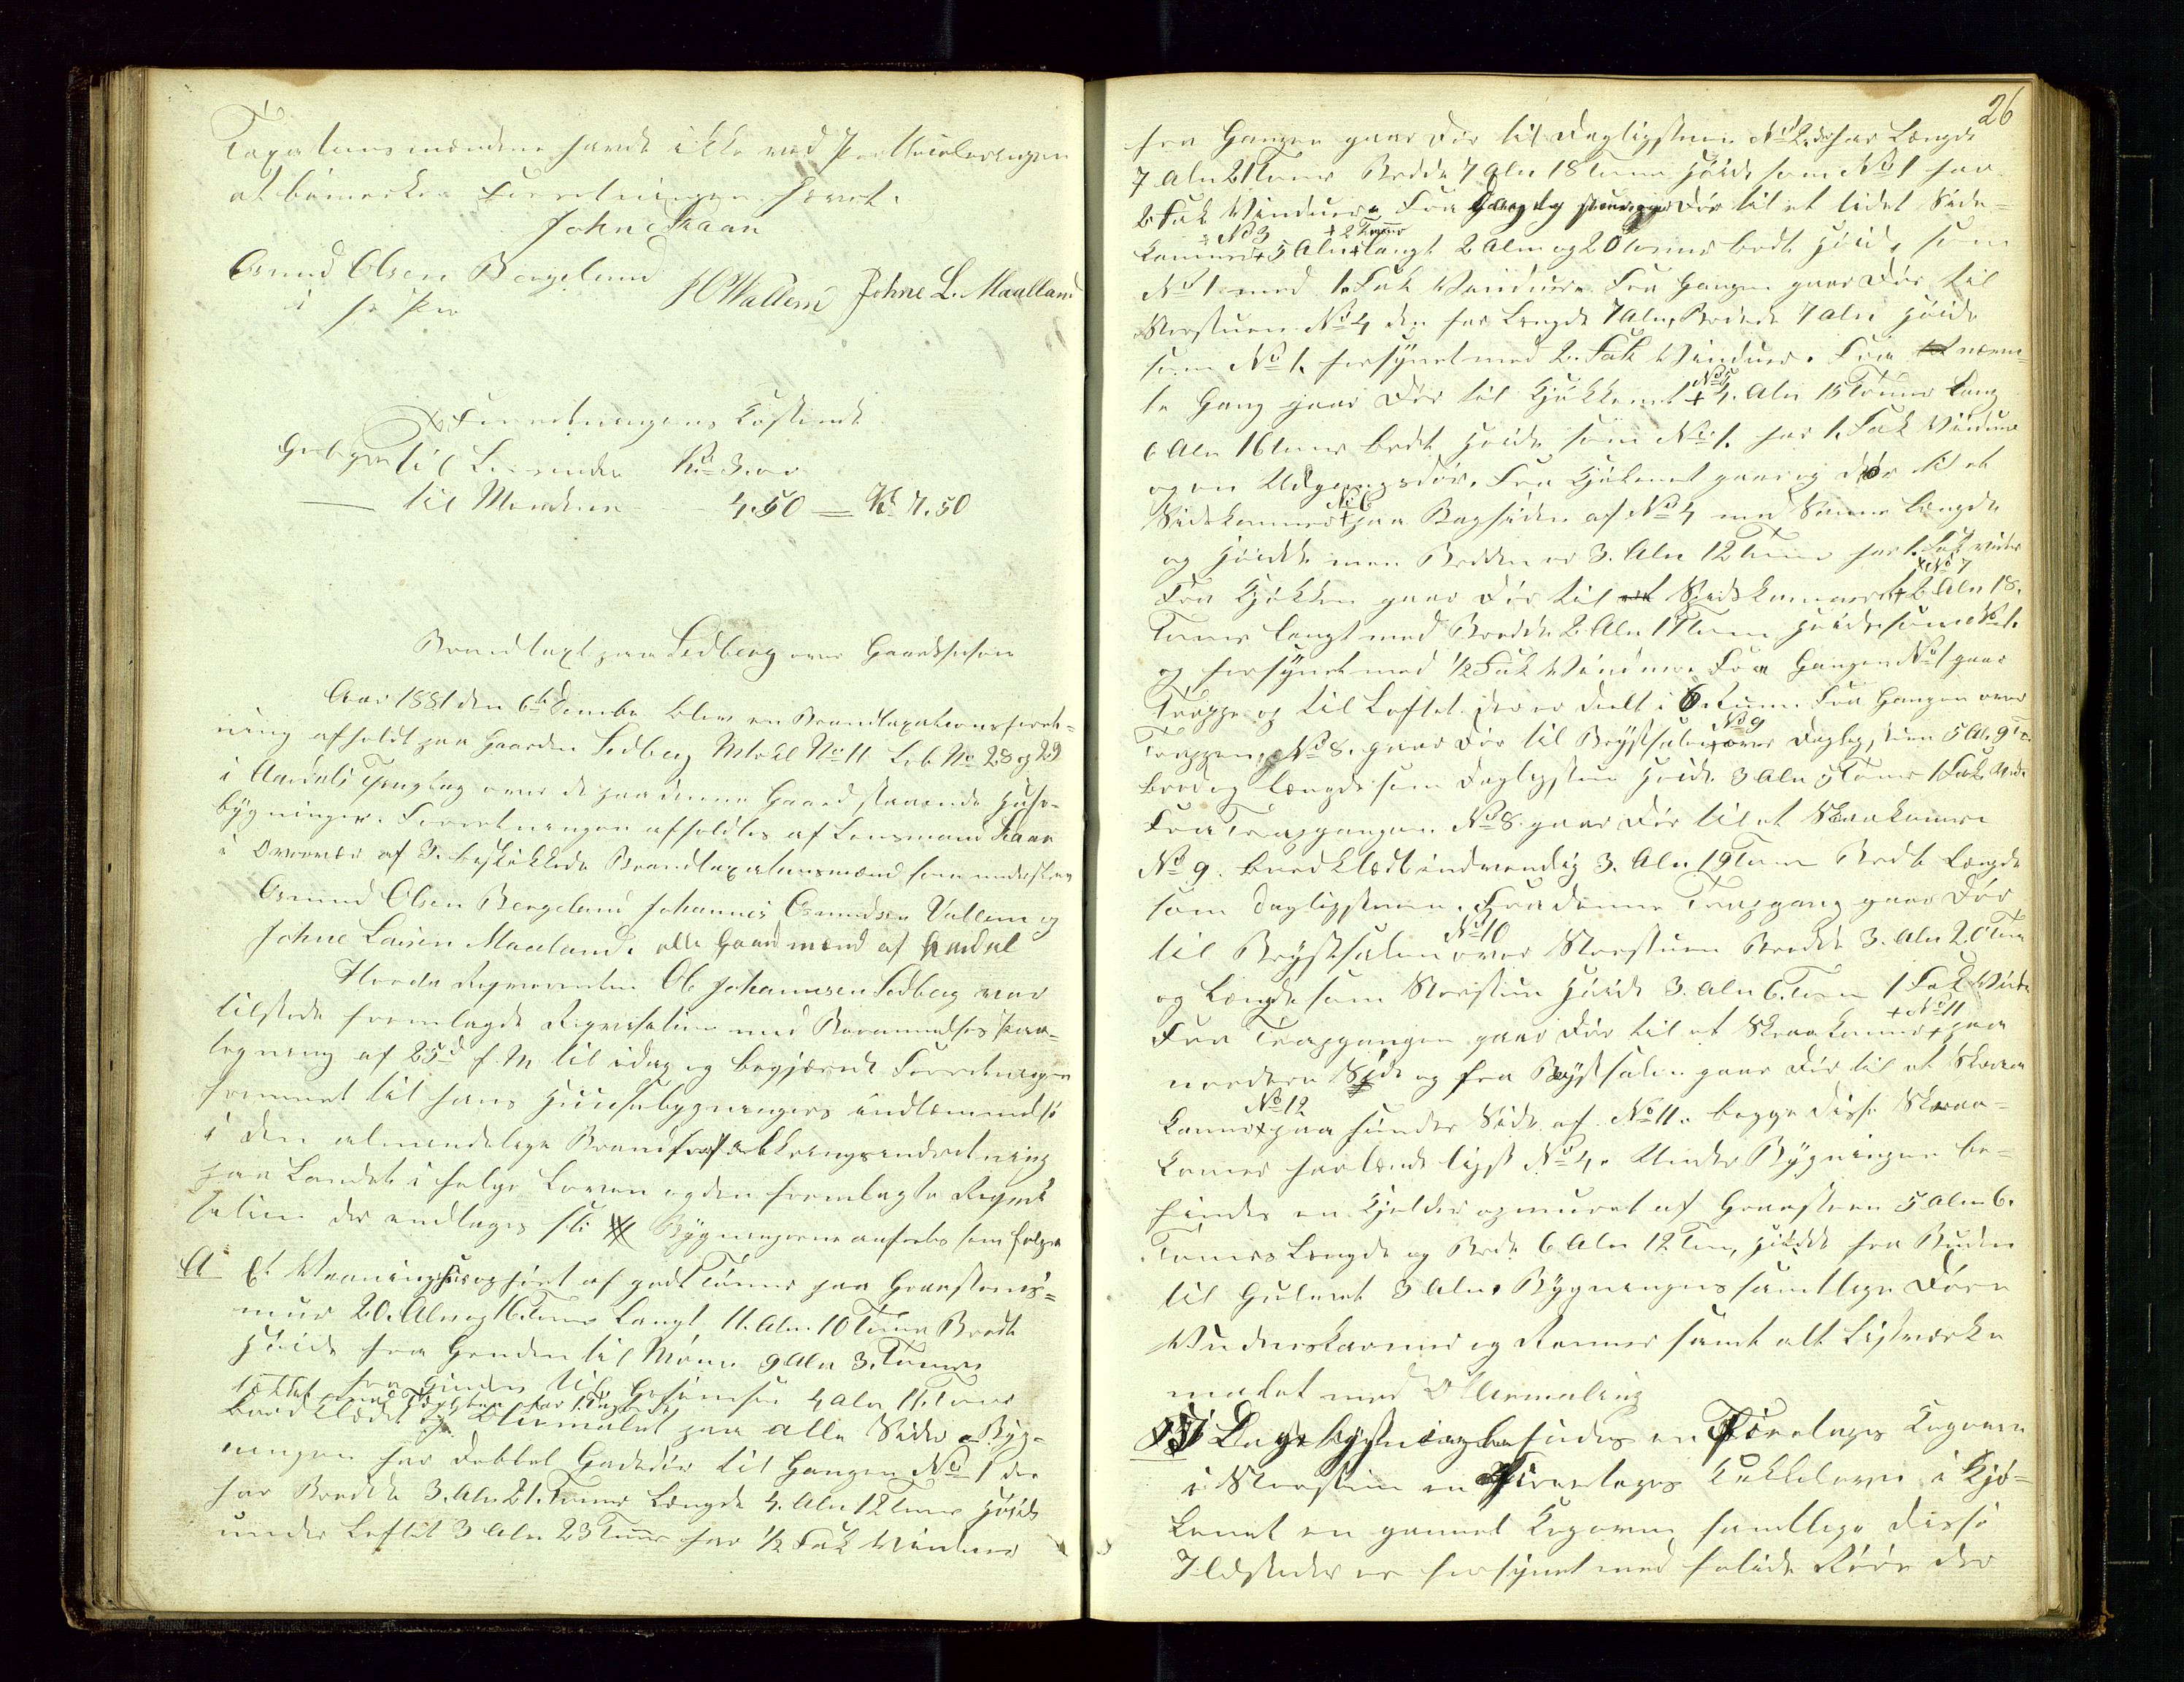 Taxationsmændene havde ikke ved Protokoleringen
at bemærke. Forretningen hævet.
Johne Skaan
Osmund Olsen Bergeland JO Wallem Johne L. Maaland
i f. p.
Forretningens Kostende
Gebyr til Lensmanden Kr 3.00
— til Mændene - 4.50 = Kr 7.50
Brandtaxt paa Sedberg over Gaardshuse
Aar 1881 den 6te Decembr blev en Brandtaxationsforret-
ning afholdt paa Gaarden Sedberg Mtrkl No 11 Lob No 28 og 29
i Aardals Thinglag over de paa denne Gaard staaende Huse-
bygninger. Forretningen afholdtes af Lensmand Skaan
i Overvær af 3 beskikkede Brandtaxationsmænd som underskrev
Osmund Olsen Bergeland Johannes Osmundsen Vallem og
Johne Larsen Maaland, alle Gaardmænd af Aardal
Rekvirenten Ole Johannesen Sedberg var
tilstede fremlagde Reqvisition med Berammelses paa-
tegning af 25d f. M til idag og begjærede Forretningen
fremmet til hans Huusebygningers indlemmelse
i den almindelige Brandforsikkringsindretning
paa Landet i følge Loven og den fremlagte Reqvi-
sition der indtages Bygningerne anførtes som følger
A Et Vaaningshus opført af godt Tømmer paa Graasteens-
mur 20. Alen og 16. Tommer Langt, 11. Aln. 10 Tomr Bredt
Høide fra Grunden til Møne 9 Aln 3. Tommer
fra Grunden til Gesimsen 4 Alen 11. Tommer
bordklædt og Oliemalet paa alle Sider. Byg-
ningen har dobbel Gadedør til Gangen No 1 der
har Bredde 3. Aln 21. Tommer Længde 4. Aln 12 Tommer Høide
under Loftet 3 Aln 23 Tommer har 1/2 Fak Vinduer
26
fra Gangen gaar Dør til Dagligstuen No 2. der har Længde
7 Aln 21 Tommer Bredde 7 Aln 18 Tommer Høide som No 1 har
2 Fak Vinduer. Fra Dagligstuen gaar Dør til et lidet Side-
+ No 3 + 2 Tommer
kammer + 5 Alen + langt 2 Alen og 20 Tommer bredt Høide som
No 1. med 1. Fak Vinduer. Fra Gangen gaar Dør til
Storstuen No 4 den har Længde 7 Aln, Bredde 7 Aln Høide
som No 1. forsynet med 2. Fak Vinduer. Fra nævn-
te Gang gaar Dør til Kjøkkenet + No 5 4. Aln 15 Tommer Lang
6 Aln 16 Tommer bredt Høide som No 1. har 1. Fak Vinduer
og en Udgangsdør. Fra Kjøkenet gaar og Dør til et
Sidekammer + No 6 paa Bagsiden af No 4 med Samme Længde
og Høide men Bredden er 3. Aln 12 Tommer har 1. Fak Vinduer
+ No 7
Fra Kjøkken gaar Dør til Spidskammeret + 2 Aln 18.
Tommer langt med Bredde 2 Aln 17 Tomm Høide som No 1.
og forsynet med 1/2 Fak Vinduer. Fra Gangen No 1 gaar
Trappe og til Loftet der er delt i 6 Rum. Fra Gangen over
Trappen, No 8. gaar Dør til Brystsalen No 9 over Dagligstuen 5 Al. 9 To.
bred og Længde som Dagligstuen Høide 3 Aln 5 Tommer 1 Fak Vindu
Fra Trapgangen No 8. gaar Dør til et Skraakamer
No 9. bordklædt indvendig 3. Aln 19 Tomme Bredt Længde
som Dagligstuen. Fra denne Trapgang gaar Dør
til Brystsalen No 10 over Storstuen Bredde 3. Aln 20 Tom
og Længde som Storstuen Høide 3. Aln 6. Tom 1 Fak Vindu
+ No 11
Fra Trapgangen gaar Dør til et Skraakammer + paa
nordere Side og fra Brystsalen gaar Dør til et Skraa
kammer + No 12 paa Side af No 11. begge disse Skraa-
kamer ligt No 4. Under Bygningen be-
findes en Kjelder opmuret af Graasteen 5 Aln 6.
Tommers Længde og Brede 6 Aln 12 Tom, Høide fra Bunden
til Gulvet 3 Aln. Bygningens samtlige Døre
Vindueskarmer og Rammer samt alt Listværk
malet med Oliemaling
I Bygningen findes en Fireetages Kogeovn
i Storstuen en Fireetages Kakkelovn i Kjø-
kenet en gammel Kogeovn samtlige disse
Ildsteder er forsynet med solide Rør der